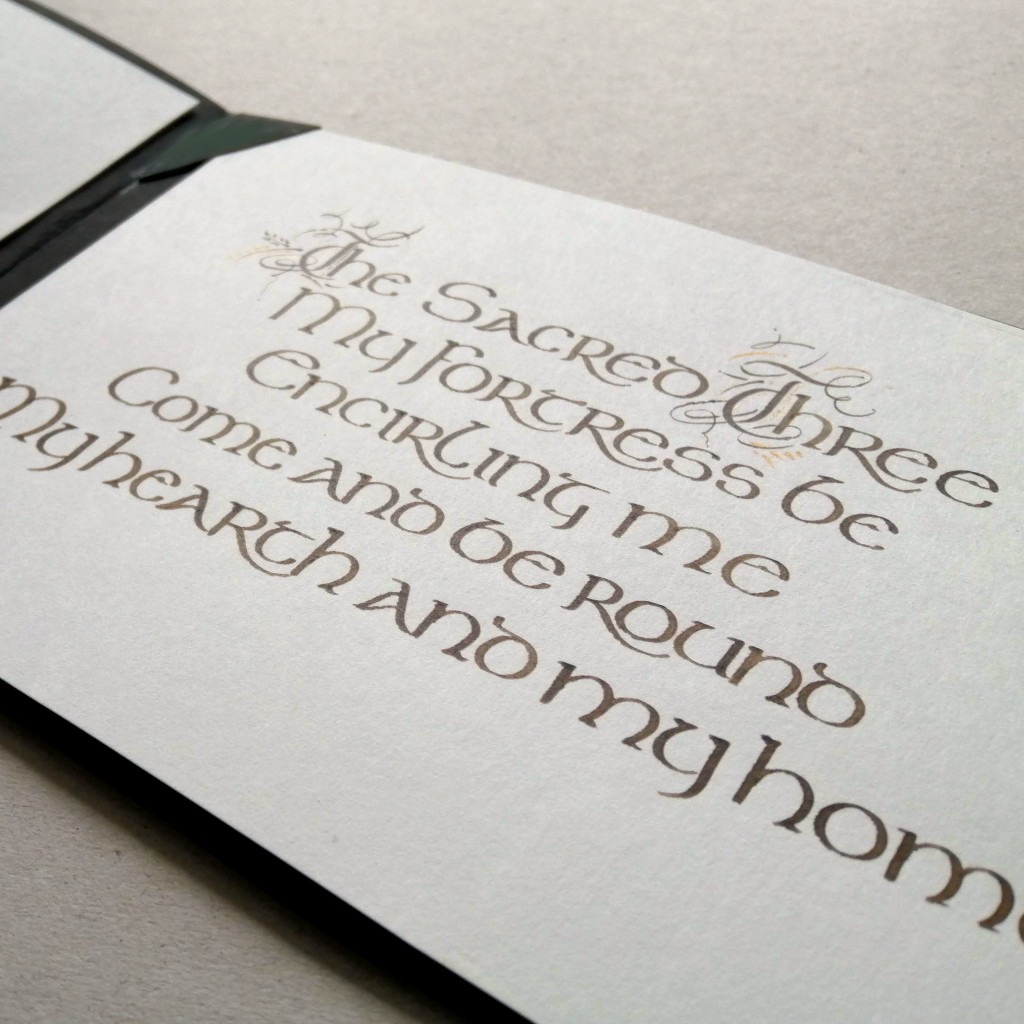 The Sacred Three
My fortress be
Encirling me
Come and be round
my hearth and my home